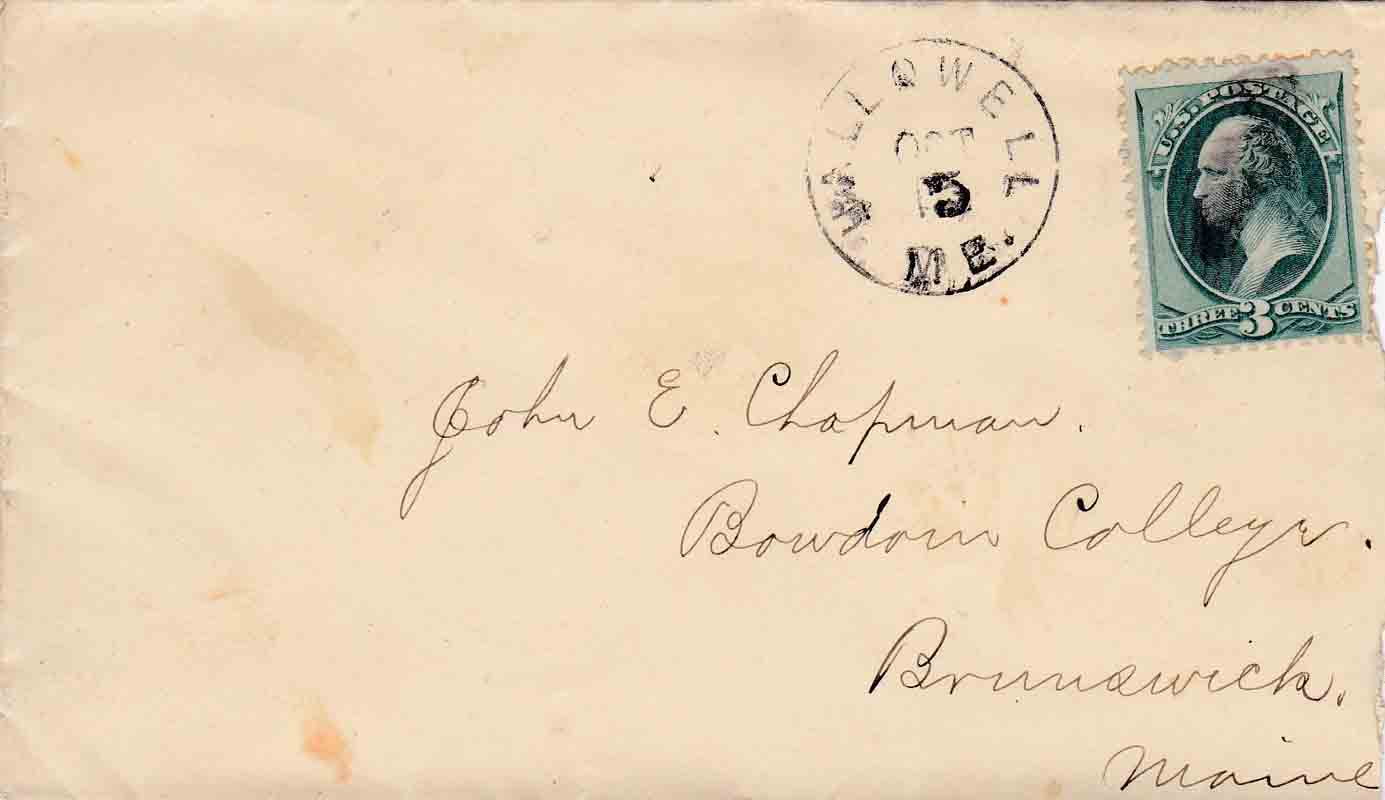 HALLOWELL
OCT
5
ME.
U.S. POSTAGE
THREE 3 CENTS
John E. Chapman.
Bowdoin College.
Brunswick.
Maine